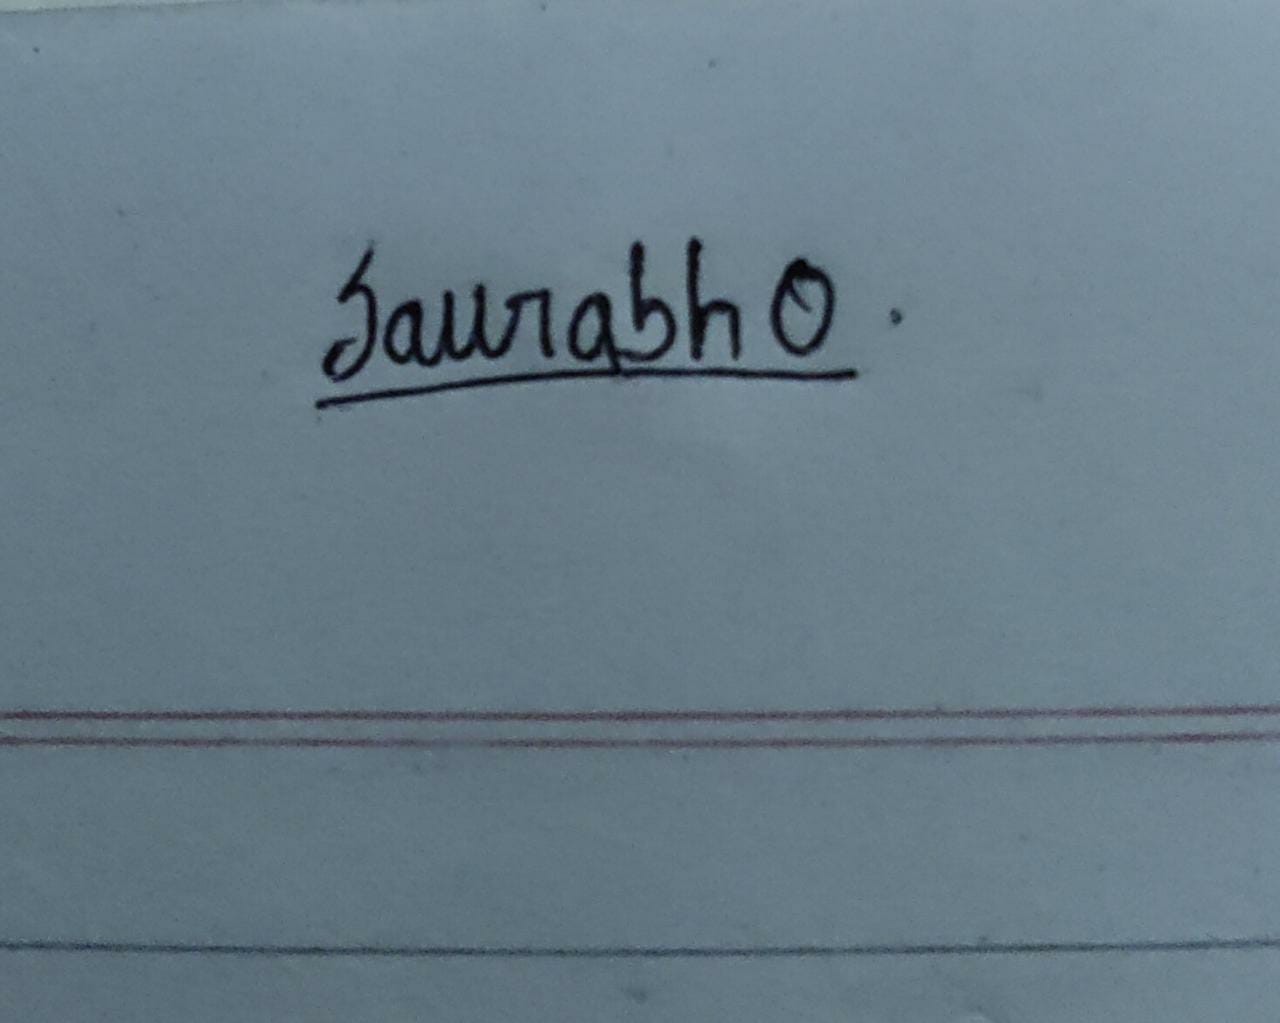 Saurabh O.